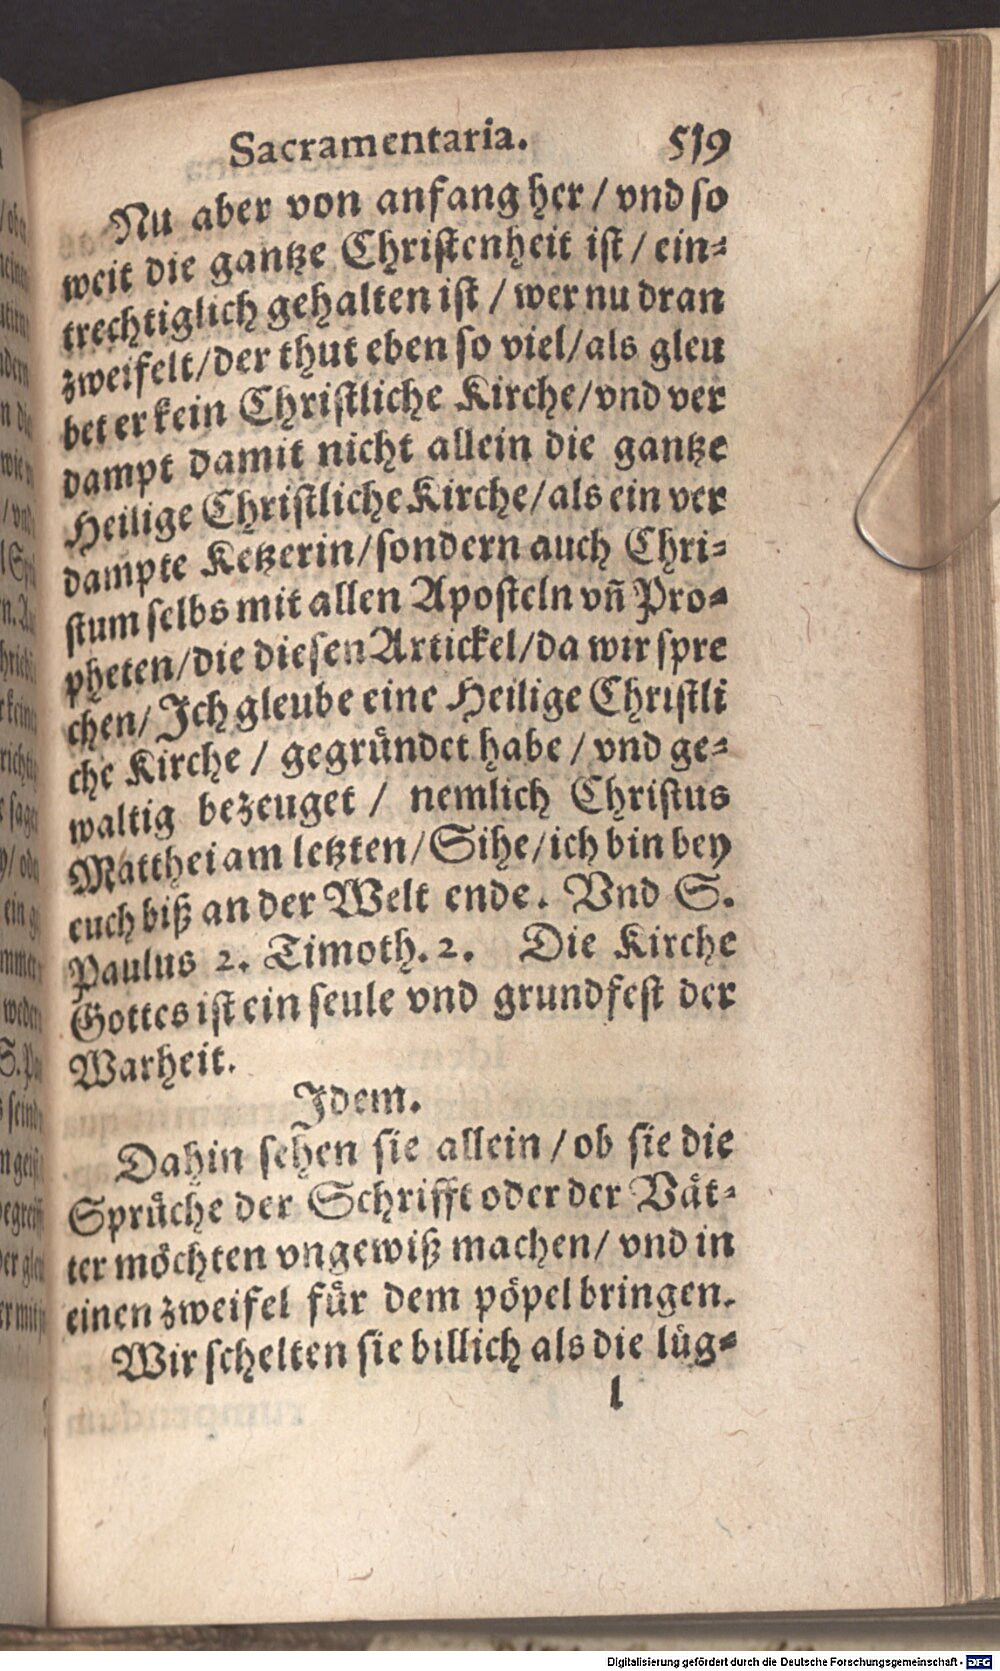 Sacramentaria. 519
Nu aber von anfang her / vnd so
weit die gantze Christenheit ist / ein⸗
trechtiglich gehalten ist / wer nu dran
zweifelt/der thut eben so viel/als gleu
bet er kein Christliche Kirche/vnd ver
dampt damit nicht allein die gantze
Heilige Christliche Kirche/als ein ver
dampte Ketzerin/sondern auch Chri⸗
stum selbs mit allen Aposteln vñ Pro⸗
pheten/die diesen Artickel/da wir spre
chen/ Ich gleube eine Heilige Christli
che Kirche / gegruͤndet habe / vnd ge⸗
waltig bezeuget / nemlich Christus
Matthei am letzten/Sihe/ich bin bey
euch biß an der Welt ende. Vnd S.
Paulus 2. Timoth. 2. Die Kirche
Gottes ist ein seule vnd grundfest der
Warheit.
Idem.
Dahin sehen sie allein / ob sie die
Spruͤche der Schrifft oder der Vaͤt⸗
ter moͤchten vngewiß machen/ vnd in
einen zweifel fuͤr dem poͤpel bringen.
Wir schelten sie billich als die luͤg⸗
l
Digitalisierung gefördert durch die Deutsche Forschungsgemeinschaft - DFG